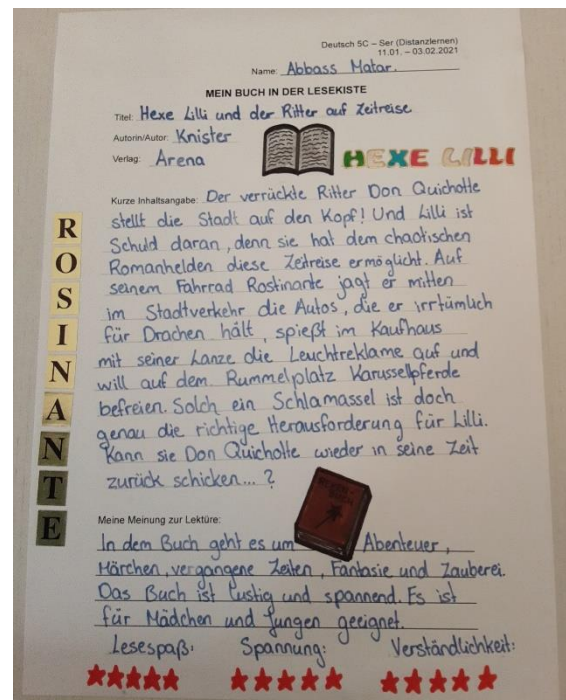 Deutsch 5C – Ser (Distanzlernen)
11.01. – 03.02.2021
Name: Abbass Matar.
MEIN BUCH IN DER LESEKISTE
Titel: Hexe Lilli und der Ritter auf Zeitreise
Autorin/Autor: Knister
Verlag: Arena
HEXE LILLI
Kurze Inhaltsangabe: Der verrückte Ritter Don Quichotte
stellt die Stadt auf den Kopf! Und Lilli ist
Schuld daran, denn sie hat dem chaotischen
Romanhelden diese Zeitreise ermöglicht. Auf
seinem Fahrrad Rostinante jagt er mitten
im Stadtverkehr die Autos, die er irrtümlich
für Drachen hält, spießt im Kaufhaus
mit seiner Lanze die Leuchtreklame auf und
will auf dem Rummelplatz Karusselpferde
befreien. Solch ein Schlamassel ist doch
genau die richtige Herausforderung für Lilli.
Kann sie Don Quichotte wieder in seine Zeit
zurück schicken...?
ROSINANTE
Meine Meinung zur Lektüre:
In dem Buch geht es um Abenteuer,
Märchen, vergangene Zeiten, Fantasie und Zauberei.
Das Buch ist lustig und spannend. Es ist
für Mädchen und Jungen geeignet.
Lesespaß: Spannung: Verständlichkeit: